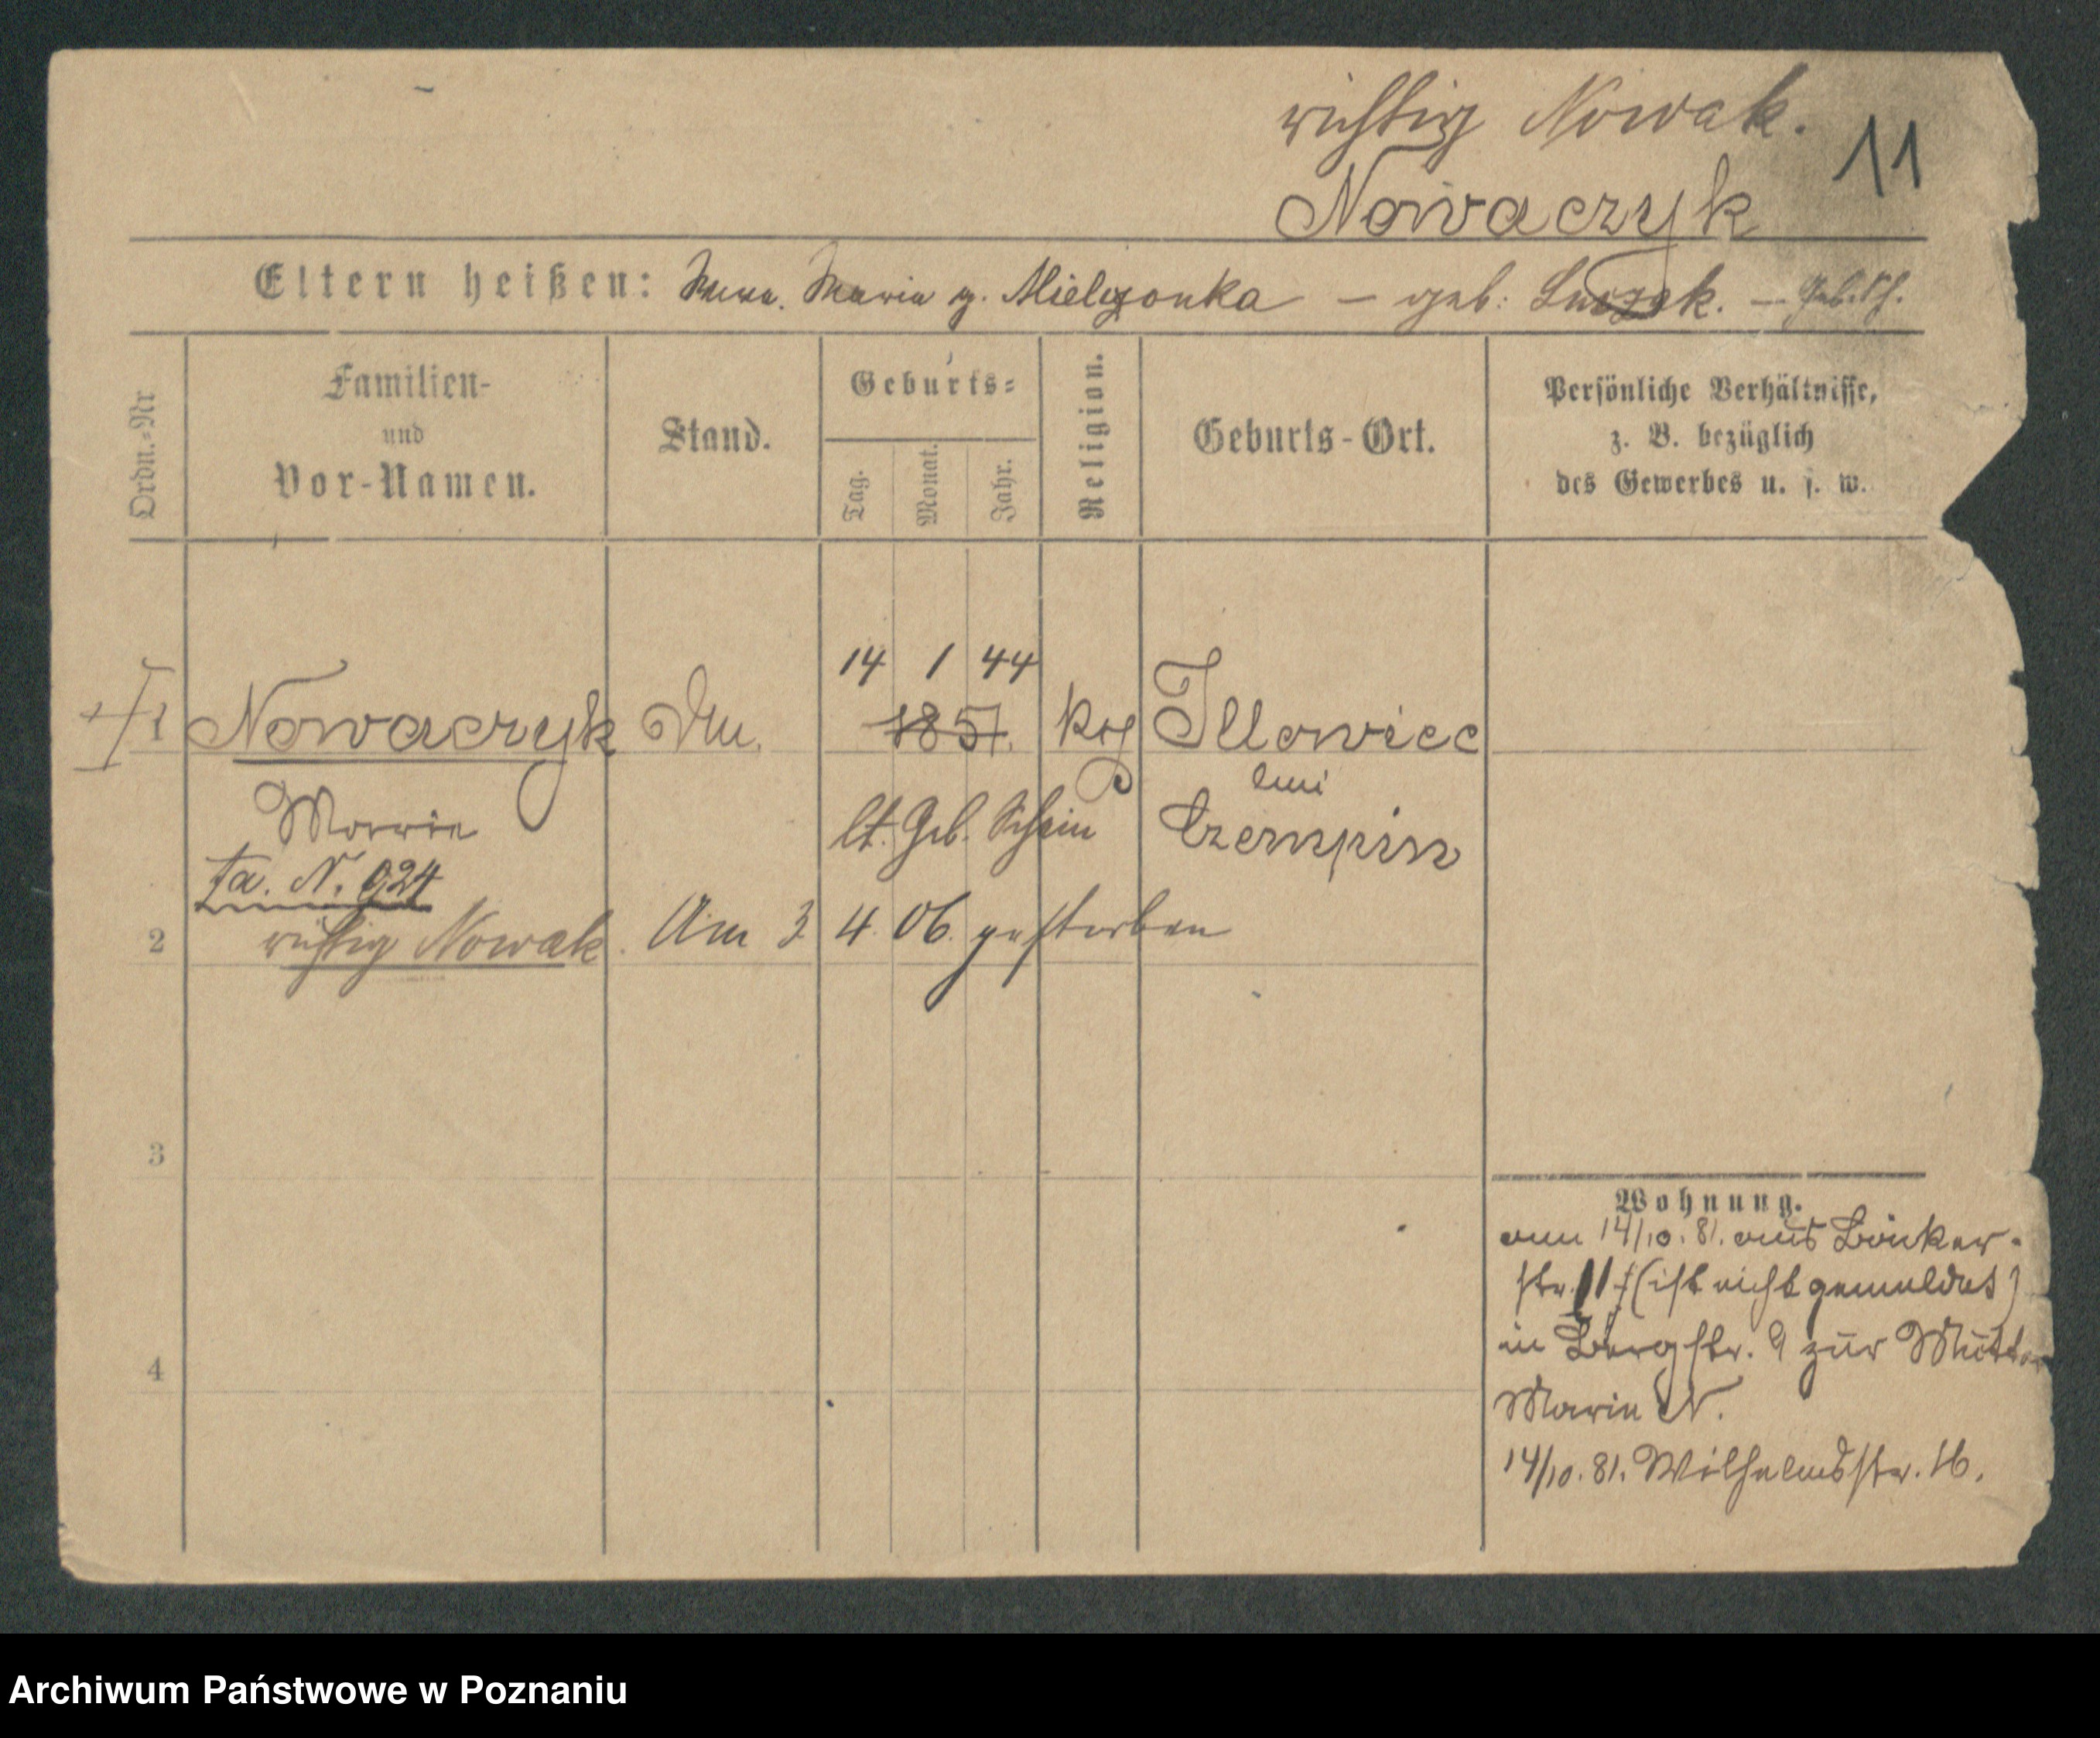 richtig Nowak.
11
Nowaczyk
Eltern heißen: Maria g. Mielczonka — geb:
Ordn.-Nr
Familien-
und
Vor-Namen.
Stand.
Geburts-
Tag.
Monat.
Jahr.
Religion.
Geburts-Ort.
Persönliche Verhältnisse,
z. B. bezüglich
des Gewerbes u. s. w.
14 1 44
1 Nowaczyk 1857. Illowiec
bei
Marie lt. Geb. Schein Czempin
2 richtig Nowak. Am 3 4. 06. gestorben
3
4
Wohnung.
am 14/10. 81. aus Bäcker-
str. 11 (ist nicht gemeldet)
in Bergstr. 9 zur Mutter
Marie N.
14/10. 81. Wilhelmsstr. 16.
Archiwum Państwowe w Poznaniu